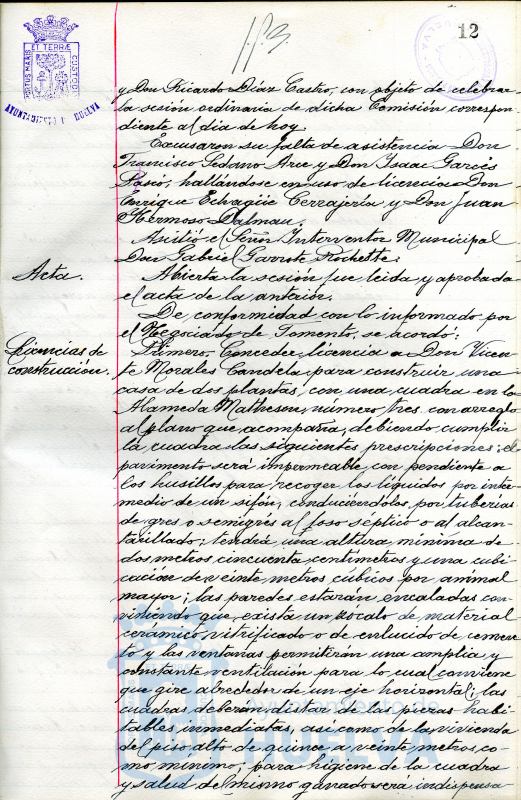 12
PORTUS MARIS ET TERRÆ CUSTODIA
AYUNTAMIENTO DE HUELVA
y Don Ricardo Díaz Castro, con objeto de celebrar
la sesión ordinaria de dicha Comisión correspon-
diente al día de hoy.
Excusaron su falta de asistencia Don
Francisco Sedano Arce y Don Isaac Garcés
hallándose en uso de licencia Don
Enrique Echvagüe Cerrajería y Don Juan
Hermoso Dalmau.
Asistió el Señor Interventor Municipal
Don Gabriel Garrote Rochette.
Acta.
Abierta la sesión fue leida y aprobada
el acta de la anterior.
De conformidad con lo informado por
el Negociado de Fomento, se acordó:
Licencias de
construcción.
Primero. Conceder licencia a Don Vicen-
te Morales Candela para construir una
casa de dos plantas, con una cuadra en la
Alameda Matheson, número tres con arreglo
al plano que acompaña, debiendo cumplir
la cuadra las siguientes prescripciones: el
pavimento será impermeable con pendiente a
los husillos para recoger los líquidos por inter-
medio de un sifón, conduciéndolos por tuberías
de gres o semigrés al foso séptico o al alcan-
tarillado; tendrá una altura mínima de
dos metros cincuenta centímetros y una cubi-
cación de veinte metros cúbicos por animal
mayor; las paredes estarán encaladas con-
viniendo que exista un zócalo de material
cerámico vitrificado o de enlucido de cemen-
to y las ventanas permitirán una amplia y
constante ventilación para lo cual conviene
que gire alrededor de un eje horizontal; las
cuadras deberán distar de las piezas habi-
tables inmediatas, así como de la vivienda
del piso alto de quince a veinte metros co-
mo mínimo; para higiene de la cuadra
y salud del mismo ganado será indispensa-
Ayuntamiento de
HUELVA